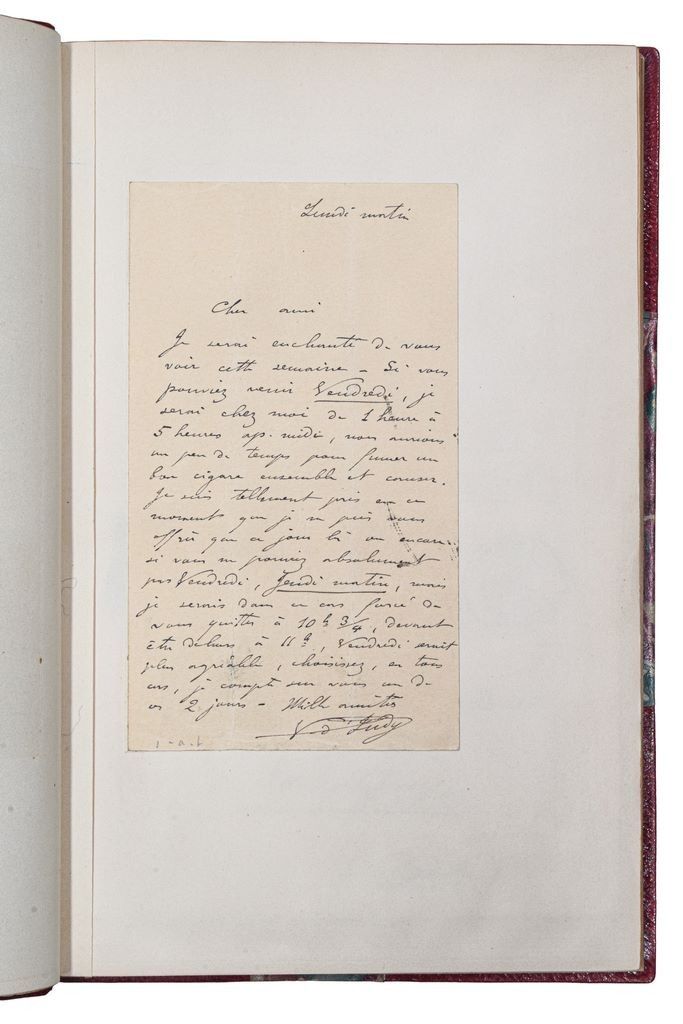 Lundi matin
Cher ami
Je serai enchanté de vous
voir cette semaine – Si vous
pouviez venir Vendredi, je
serai chez moi de 1 heure à
5 heures ap. midi, nous aurions
un peu de temps pour fumer un
bon cigare ensemble et causer.
Je suis tellement pris en ce
moment que je ne puis vous
offrir que ce jour là ou encore
si vous ne pouviez absolument
pas Vendredi, Jeudi matin, mais
je serais dans ce cas forcé de
vous quitter à 10h 3/4, devant
être dehors à 11h, Vendredi serait
plus agréable, choisissez, en tous
cas, je compte sur vous un de
ces 2 jours – Mille amitiés
V d'Indy